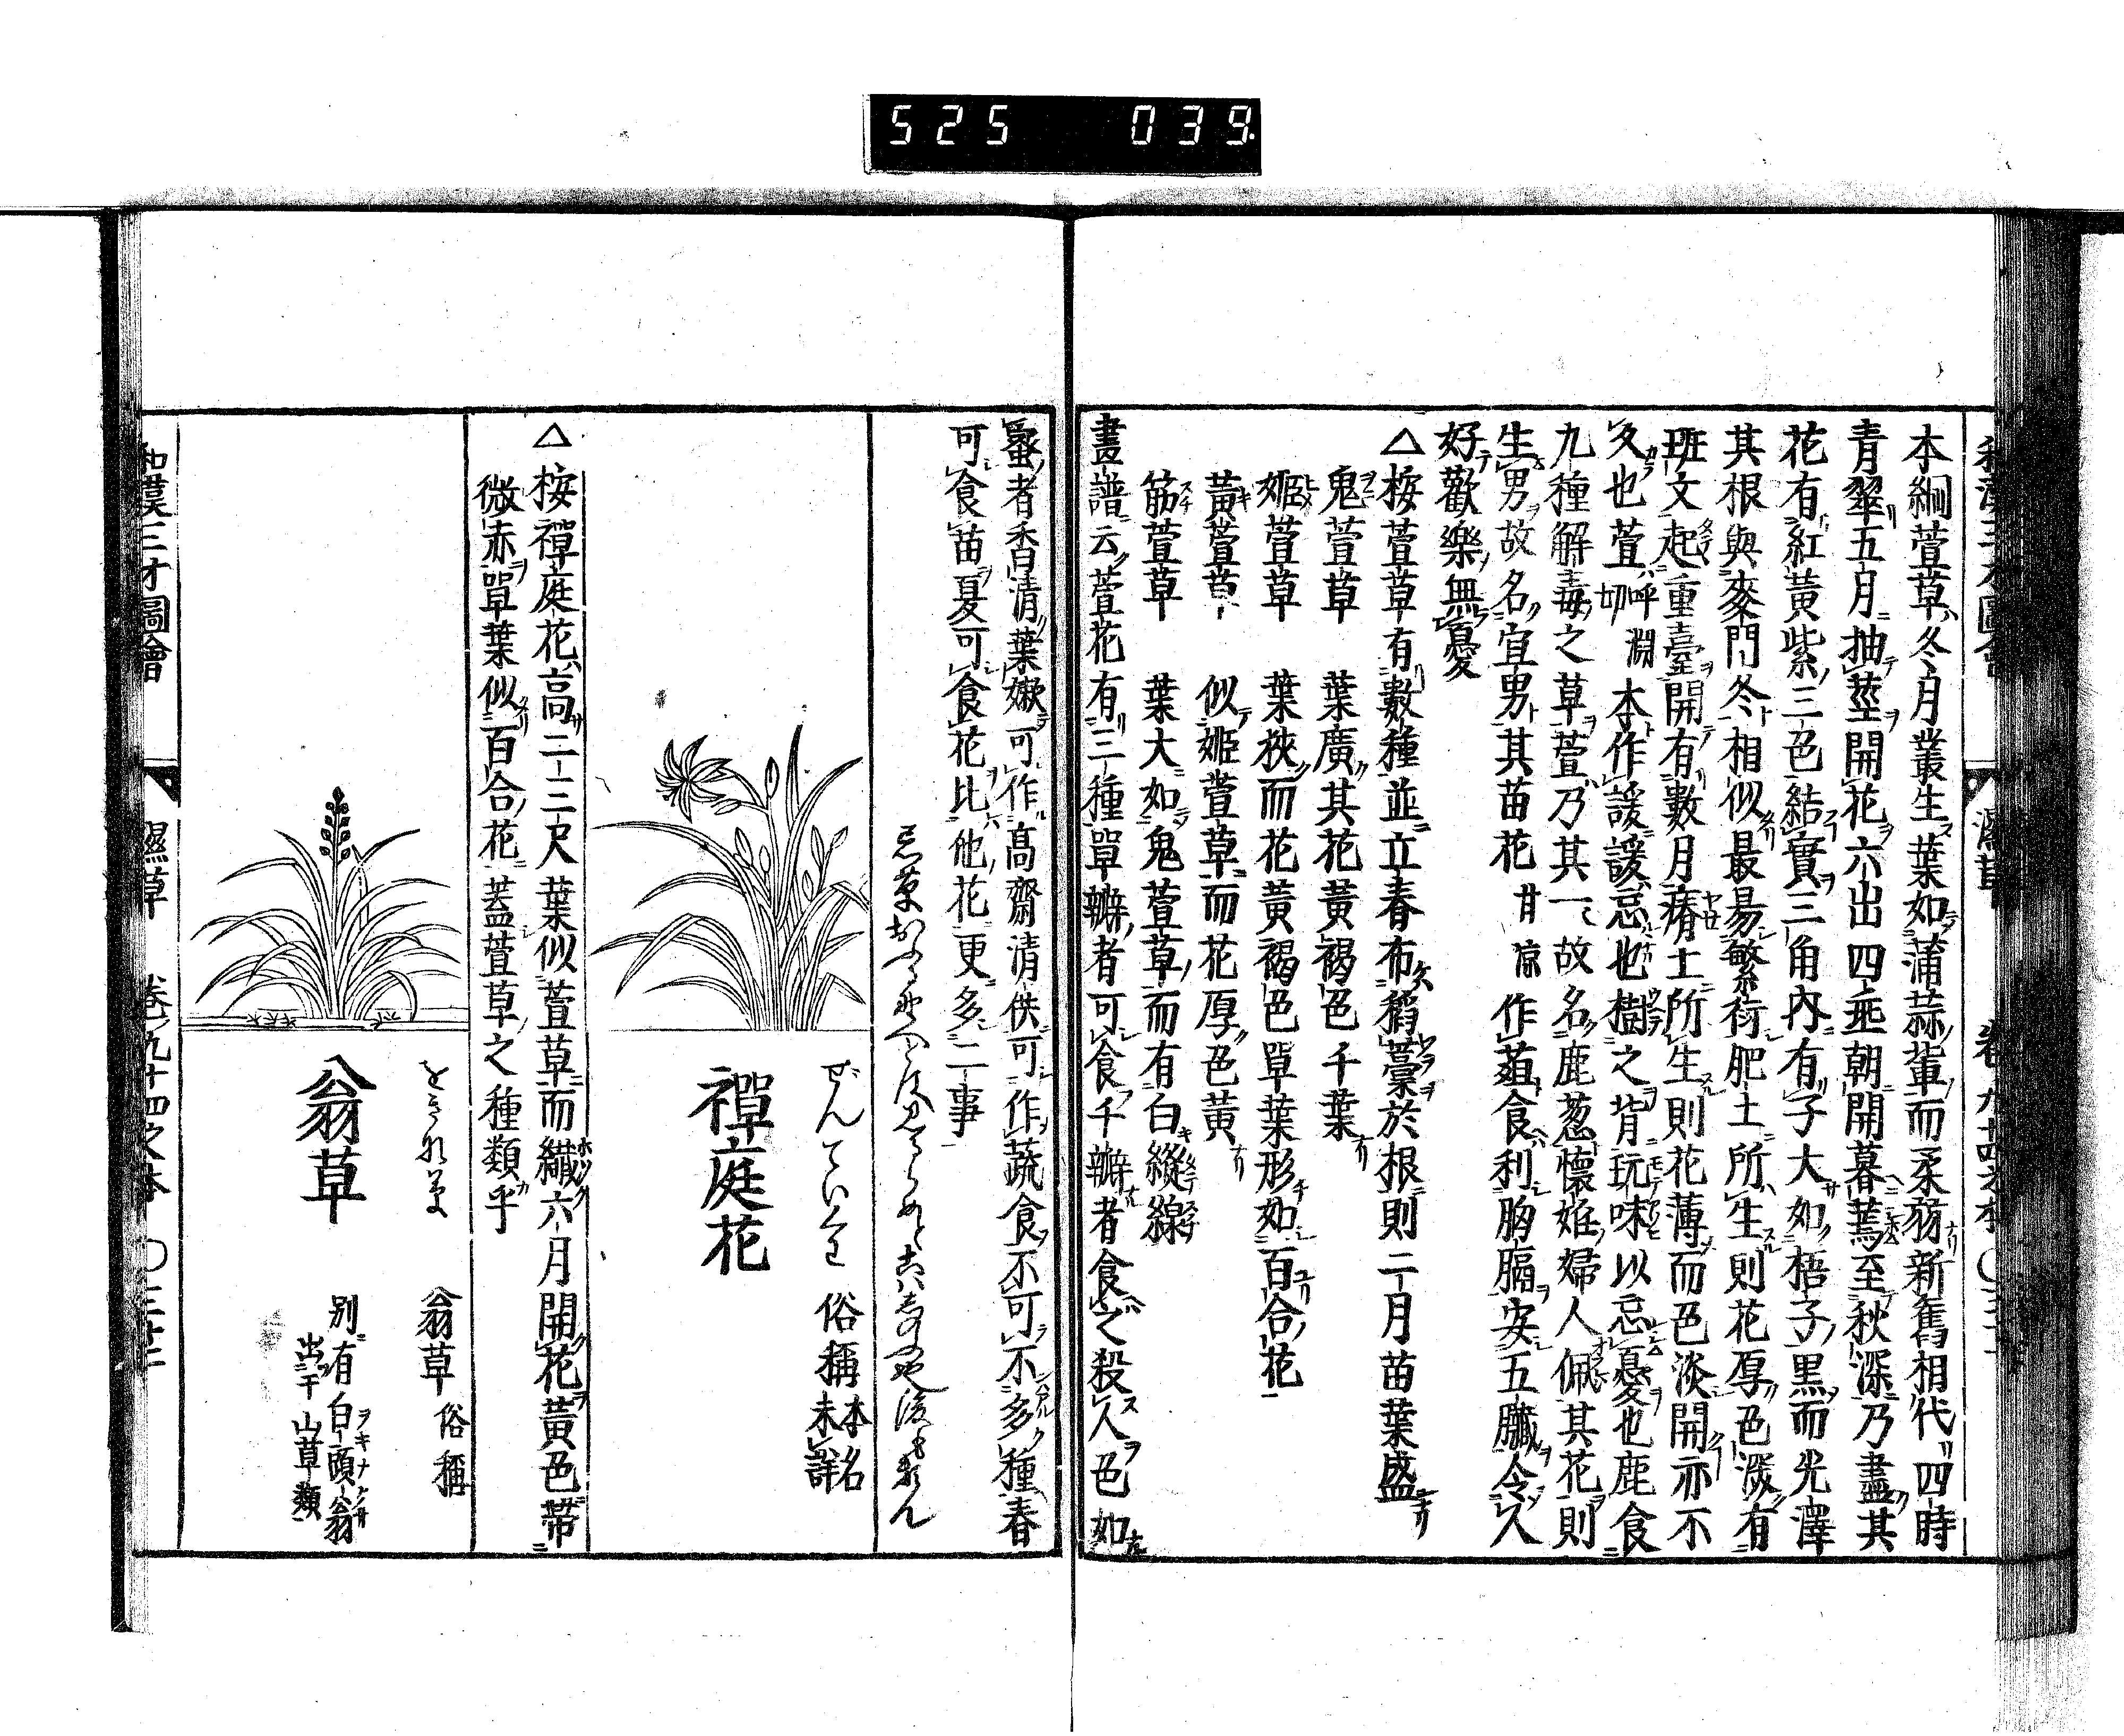 525 039
本綱萱草冬月叢生葉如蒲蒜軰而柔弱新舊相代四時
青翠五月抽莖開花六出四垂朝開暮蔫至秋深乃盡其
花有紅黃紫三色結實三角內有子大如梧子黒而光澤
其根與麥門冬相似最昜繁衍肥土所生則花厚色深有
班文起重臺開有數月瘠土所生則花薄而色淡開亦不
久也萱呼淵切本作諼諼忘也樹之背玩味以忘憂也鹿食
九種解毒之草萱乃其一故名鹿葱懷姙婦人佩其花則
生男故名宜男其苗花甘凉作葅食利胸膈安五臟令人
好歡樂無憂
△桉萱草有數種並立春布稻藁於根則二月苗葉盛
鬼萱草 葉廣其花黃褐色千葉
姬萱草 葉挾而花黃褐色單葉形如百合花
黃萱草 似姬萱草而花厚色黃
筋萱草 葉大如鬼萱草而有白縱線
畫譜云萱花有三種單瓣者可食千瓣者食之殺人色如
蜜者香清葉嫩可作高齋清供可作蔬食不可不多種春
可食苗夏可食花比他花更多二事
ぜんていくは
禪庭花
俗稱
本名未詳
△桉禪庭花高二三尺葉似萱草而纎六月開花黃色帶
微赤單葉似百合花蓋萱草之種類乎
をきな草
翁草
翁草 俗稱
別有白頭翁
出于山草類
和漢三才圖會 濕草 卷九十四之本 〇三十二